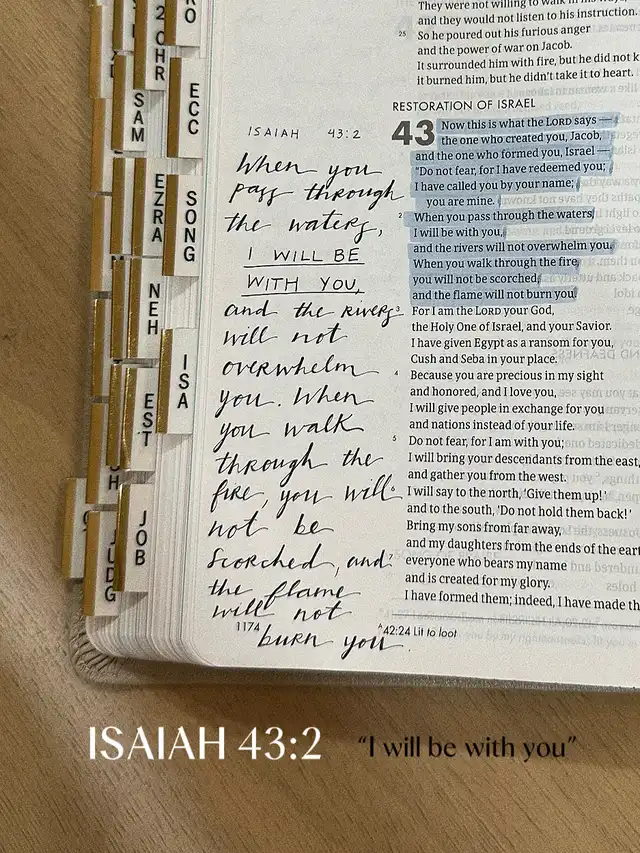 RO
2 CHR
SAM
ECC
EZRA
SONG
NEH
ISA
EST
JOB
JUDG
ISAIAH 43:2
When you
pass through
the waters,
I WILL BE
WITH YOU,
and the rivers
will not
overwhelm
you. When
you walk
through the
fire, you will
not be
scorched, and
the flame
will not
burn you.
1174
and they would not listen to his instruction.
25 So he poured out his furious anger
and the power of war on Jacob.
It surrounded him with fire, but he did not k
it burned him, but he didn't take it to heart.
RESTORATION OF ISRAEL
43 Now this is what the LORD says —
the one who created you, Jacob,
and the one who formed you, Israel —
"Do not fear, for I have redeemed you;
I have called you by your name;
you are mine.
2 When you pass through the waters,
I will be with you,
and the rivers will not overwhelm you.
When you walk through the fire,
you will not be scorched,
and the flame will not burn you.
3 For I am the LORD your God,
the Holy One of Israel, and your Savior.
I have given Egypt as a ransom for you,
Cush and Seba in your place.
4 Because you are precious in my sight
and honored, and I love you,
I will give people in exchange for you
and nations instead of your life.
5 Do not fear, for I am with you;
I will bring your descendants from the east,
and gather you from the west.
6 I will say to the north, 'Give them up!'
and to the south, 'Do not hold them back!'
Bring my sons from far away,
and my daughters from the ends of the eart
7 everyone who bears my name
and is created for my glory.
I have formed them; indeed, I have made th
A 42:24 Lit to loot
ISAIAH 43:2 "I will be with you"